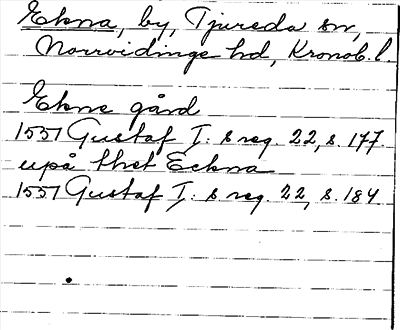 Ekna, by, Tjureda sn,
Norrvidinge hd, Kronob. l.
Ekne gård
1551 Gustaf I: s reg. 22, s. 177.
upå thet Eckna
1551 Gustaf I: s reg. 22, s. 184